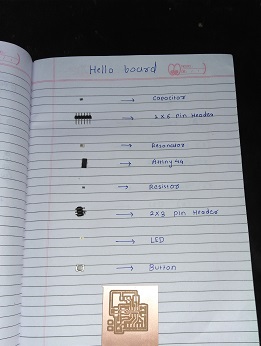 Hello board
→ Capacitor
→ 2x6 Pin Header
→ Resonator
→ Attiny44
→ Resistor
→ 2x3 Pin Header
→ LED
→ Button